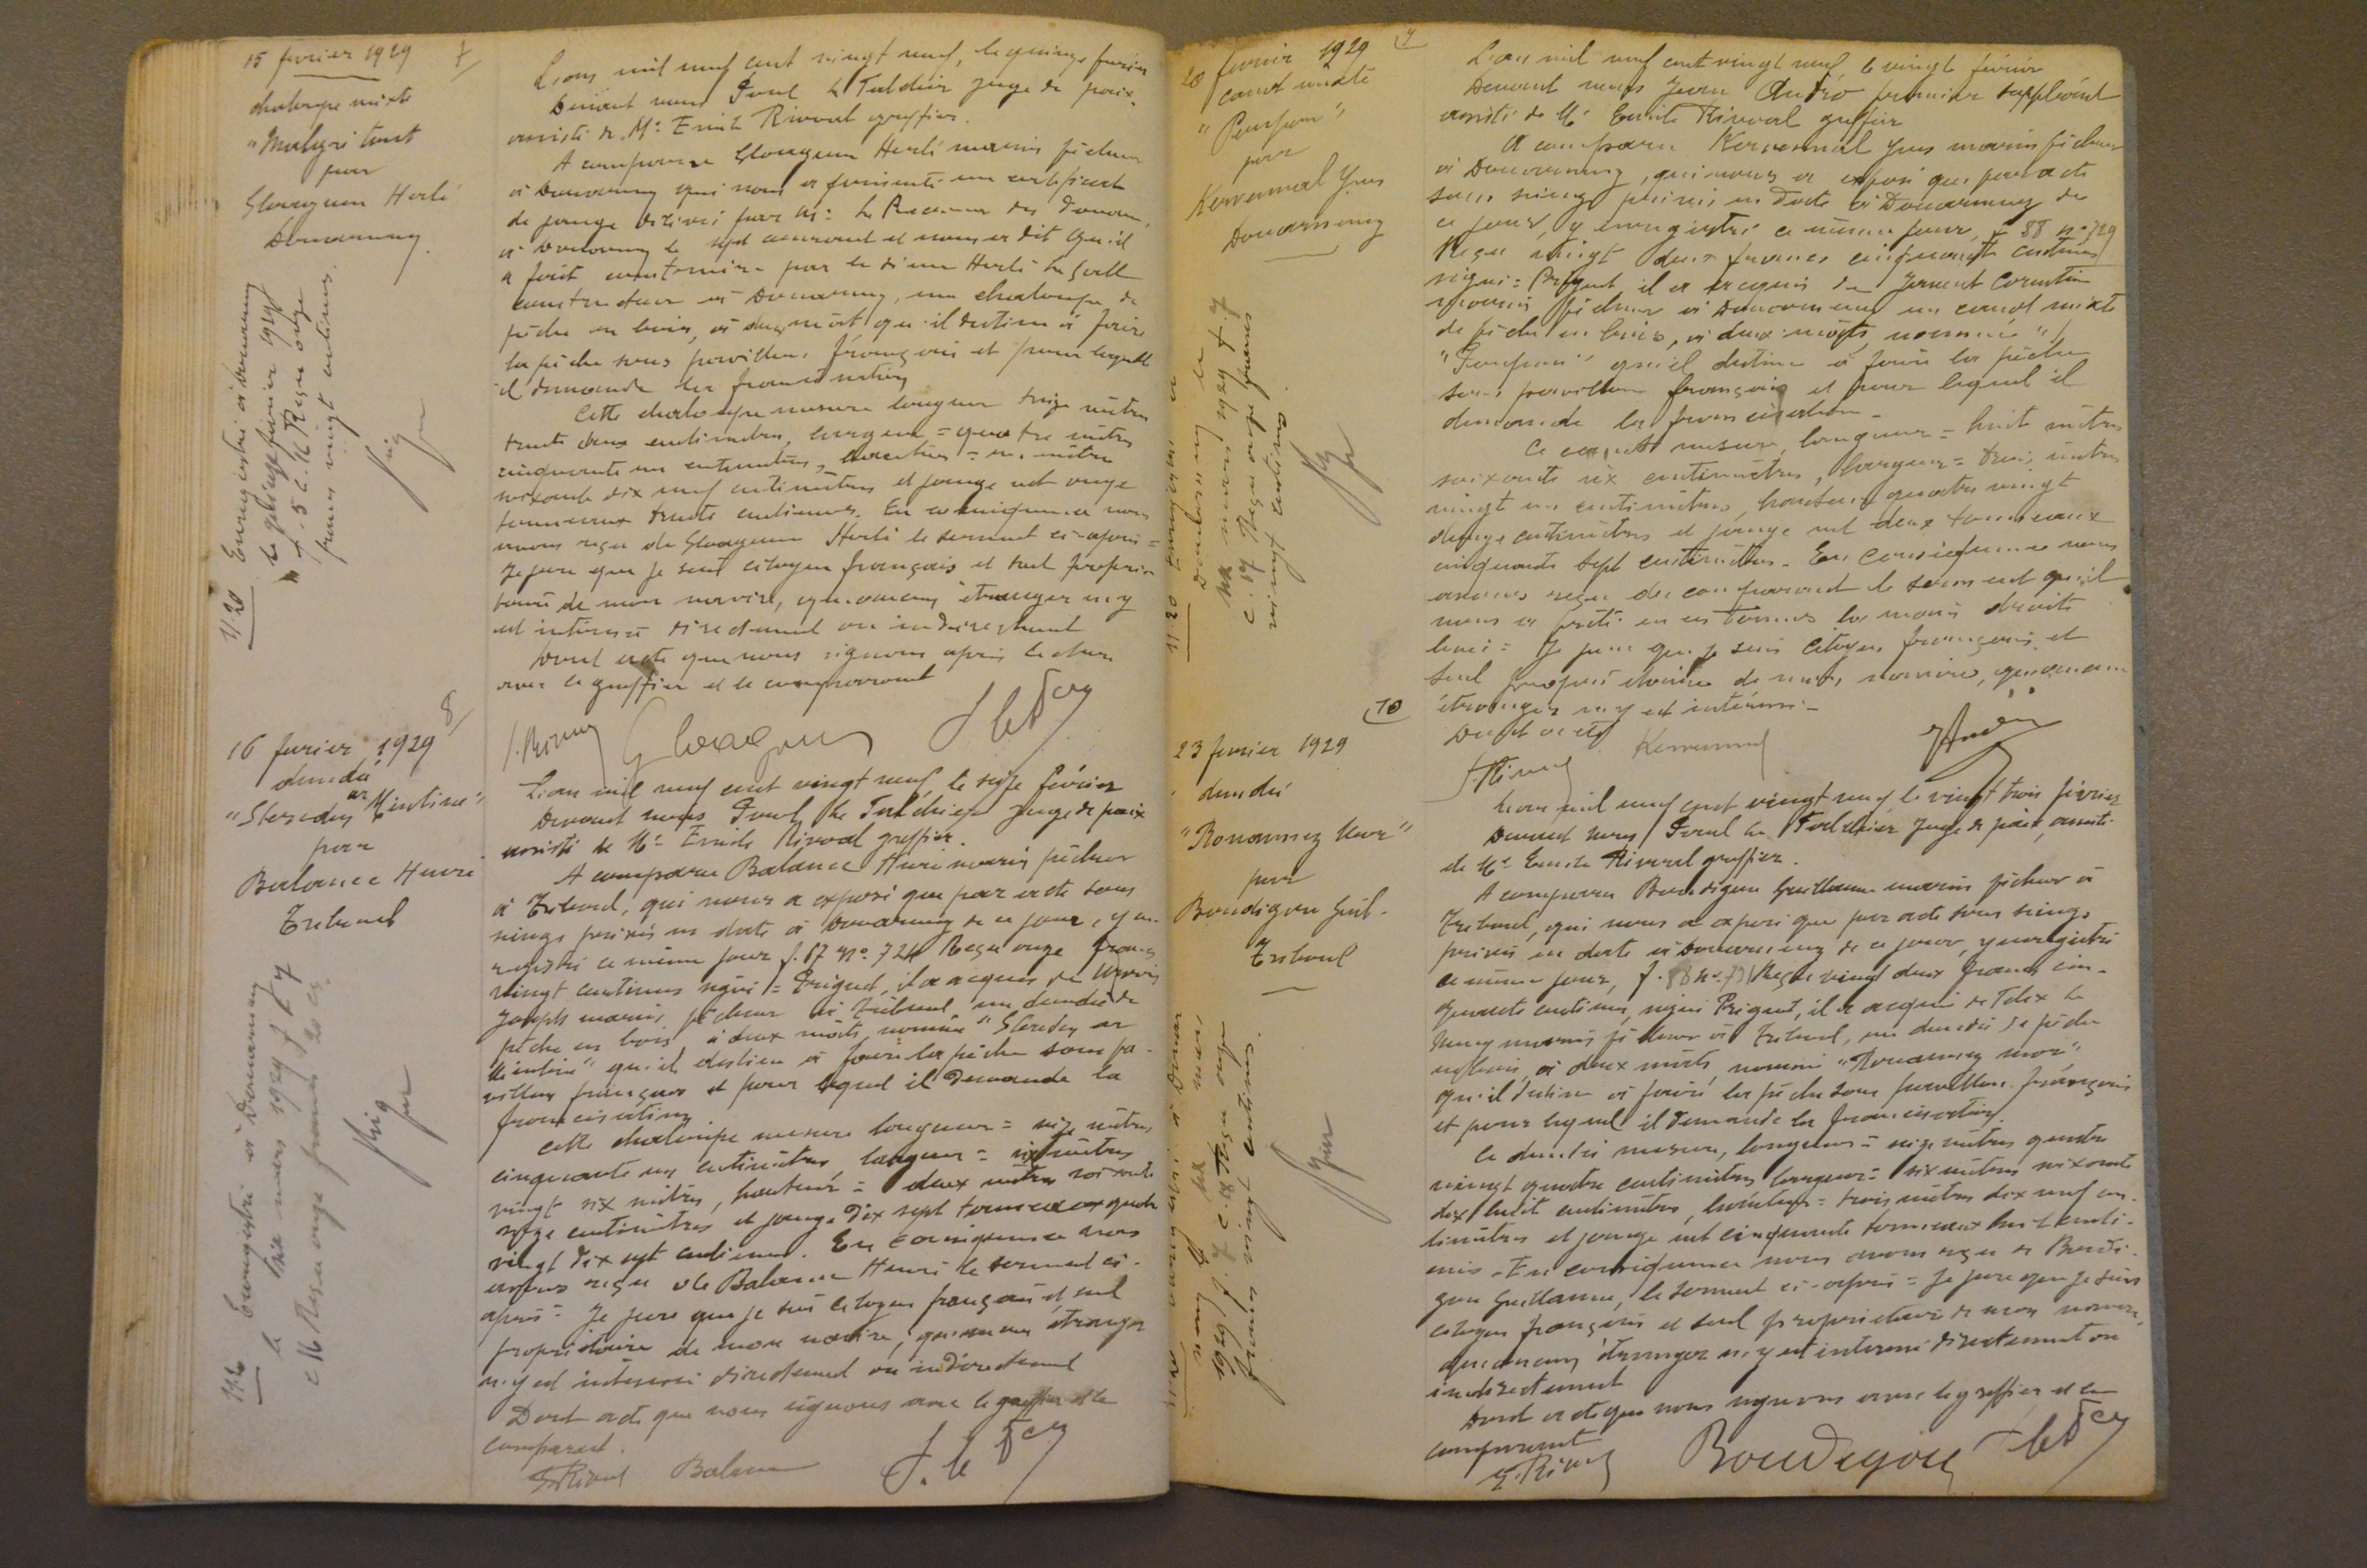 15 fevrier 1929 7
chaloupe mixte
"Malgré tout
par
Gloaguen Hervé
Douarnenez
Enregistré à Douarnenez
le quinze fevrier 1929
f. 5 c. 16 Reçu onze
francs vingt centimes.
11.20
L'an mil neuf cent vingt neuf, le quinze fevrier
Devant nous Paul Le Taldéir juge de paix
assisté de Me Emile Rivoal greffier.
A comparu Gloaguen Hervé marin pêcheur
à Douarnenez qui nous a présenté un certificat
de jauge délivré par Mr le Receveur des Douanes
à Douarnenez le sept courant et nous a dit qu'il
a fait construire par le sieur Hervé Le Goll
constructeur à Douarnenez, une chaloupe de
pêche en bois, à deux mâts qu'il destine à faire
la pêche sous pavillon français et pour laquelle
il demande la francisation
Cette chaloupe mesure longueur treize mètres
trente deux centimètres, largeur = quatre mètres
cinquante un centimètres, hauteur = un mètre
soixante dix neuf centimètres et jauge net onze
tonneaux trente centièmes. En conséquence nous
avons reçu de Gloaguen Hervé le serment ci-après =
Je jure que je suis citoyen français et seul proprié
taire de mon navire, qu'aucun étranger n'y
est intéressé directement ou indirectement
Dont acte que nous signons après lecture
avec le greffier et le comparant
E. Rivoal Gloaguen
16 fevrier 1929 8
dundee
"Steredenn ar Mintine"
par
Balanec Henri
Tréboul
Enregistré à Douarnenez
le six mars 1929 f. 7
c. 16 Reçu onze francs 20 c.
L'an mil neuf cent vingt neuf, le seize février
Devant nous Paul Le Taldéir juge de paix
assisté de Me Emile Rivoal greffier.
A comparu Balanec Henri marin pêcheur
à Tréboul, qui nous a exposé que par acte sous
seings privés en date à Douarnenez de ce jour, y en-
registré ce même jour f. 87 No. 724 Reçu onze francs
vingt centimes signé = Prigent, il a acquis de
Joseph marin pêcheur à Tréboul, un dundee de
pêche en bois, à deux mâts, nommé "Steredenn ar
Mintine" qu'il destine à faire la pêche sous pa-
villon français et pour lequel il demande la
francisation
Cette chaloupe mesure longueur = seize mètres
cinquante six centimètres, largeur = six mètres
vingt six mètres, hauteur = deux mètres soixante
seize centimètres et jauge dix sept tonneaux quatre
vingt dix sept centièmes. En conséquence nous
avons reçu de Balanec Henri le serment ci-
après = Je jure que je suis citoyen français et seul
propriétaire de mon navire, qu'aucun étranger
n'y est intéressé directement ou indirectement
Dont acte que nous signons avec le greffier et le
comparant.
E. Rivoal Balanec
20 fevrier 1929 9
canot mixte
par
Kervarnal Yves
Douarnenez
Douarnenez le
six mars 1929 f. 7
c. 17 Reçu onze francs
vingt centimes.
11.20
L'an mil neuf cent vingt neuf, le vingt février
Devant nous Jean André premier suppléant
assisté de Me Emile Rivoal greffier
A comparu Kervarnal Yves marin pêcheur
à Douarnenez, qui nous a exposé que par acte
sous seings privés en date à Douarnenez de
ce jour, y enregistré ce même jour, f. 88 No 729
Reçu vingt deux francs cinquante centimes
signé = Prigent, il a acquis de Corentin
marin pêcheur à Douarnenez un canot mixte
de pêche en bois, à deux mâts, nommé
qu'il destine à faire la pêche
sous pavillon français et pour lequel il
demande la francisation -
Ce canot mesure, longueur = huit mètres
soixante six centimètres, largeur = trois mètres
vingt un centimètres, hauteur quatre vingt
douze centimètres et jauge net deux tonneaux
cinquante sept centimètres. En conséquence nous
avons reçu du comparant le serment qu'il
nous a prêté en ces termes la main droite
levée = Je jure que je suis citoyen français et
seul propriétaire de mon navire, qu'aucun
étranger n'y est intéressé -
Dont acte
E. Rivoal Kervarnal J. André
10
23 fevrier 1929
dundee
"Rouannez Mor"
par
Bourdigou Guil.
Tréboul
six mars
1929 f. 7 c. 18 Reçu onze
francs vingt centimes.
L'an mil neuf cent vingt neuf le vingt trois février
Devant nous Paul Le Taldéir juge de paix, assisté
de Me Emile Rivoal greffier.
A comparu Bourdigou Guillaume marin pêcheur à
Tréboul, qui nous a exposé que par acte sous seings
privés en date à Douarnenez de ce jour, y enregistré
ce même jour, f. 88 No. 731 Reçu vingt deux francs cin-
quante centimes, signé Prigent, il a acquis de Felix Le
marin pêcheur à Tréboul, un dundee de pêche
en bois, à deux mâts, nommé "Rouannez Mor"
qu'il destine à faire la pêche sous pavillon français
et pour lequel il demande la francisation
Ce dundee mesure, longueur = seize mètres quatre
vingt quatre centimètres largeur = six mètres soixante
dix huit centimètres, hauteur = trois mètres dix neuf cen-
timètres et jauge net cinquante tonneaux huit centi-
èmes - En conséquence nous avons reçu de Bourdi-
gou Guillaume, le serment ci-après = Je jure que je suis
citoyen français et seul propriétaire de mon navire,
qu'aucun étranger n'y est intéressé directement ou
indirectement
Dont acte que nous signons avec le greffier et le
comparant
E. Rivoal Bourdigou